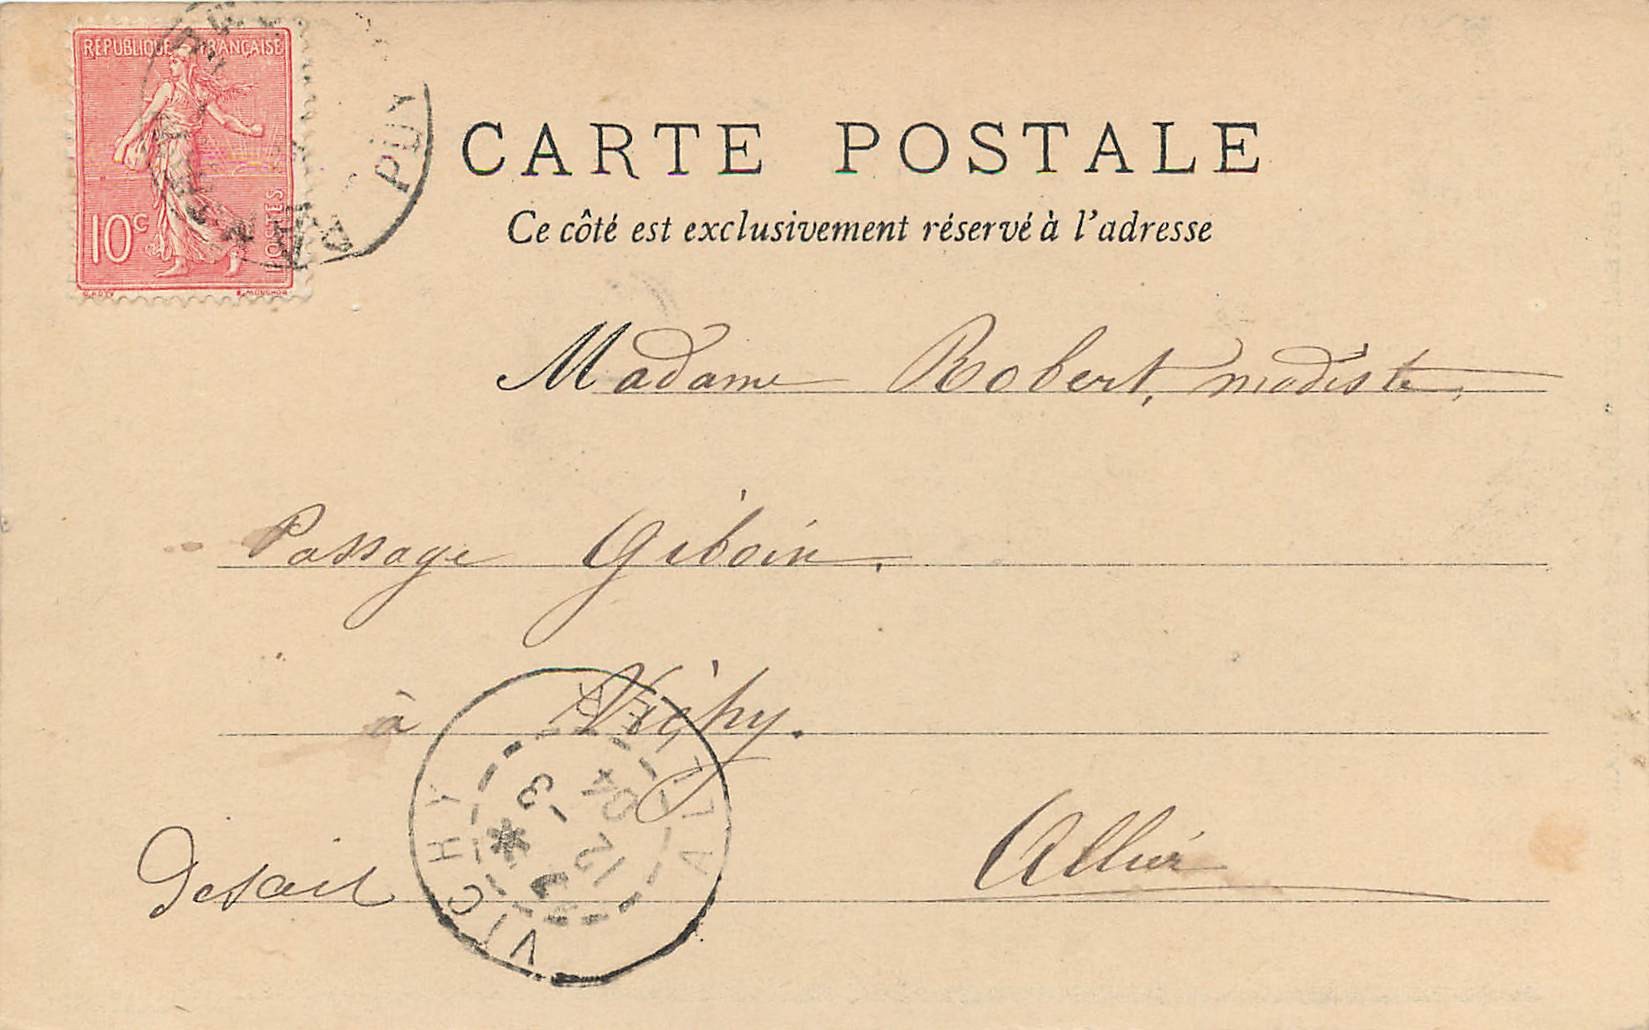 RÉPUBLIQUE FRANÇAISE
10c POSTES
PUY
CARTE POSTALE
Ce côté est exclusivement réservé à l'adresse
Madame Robert, modiste,
Passage Giboin.
à Vichy.
Allier
VICHY ALLIER
3 12 04